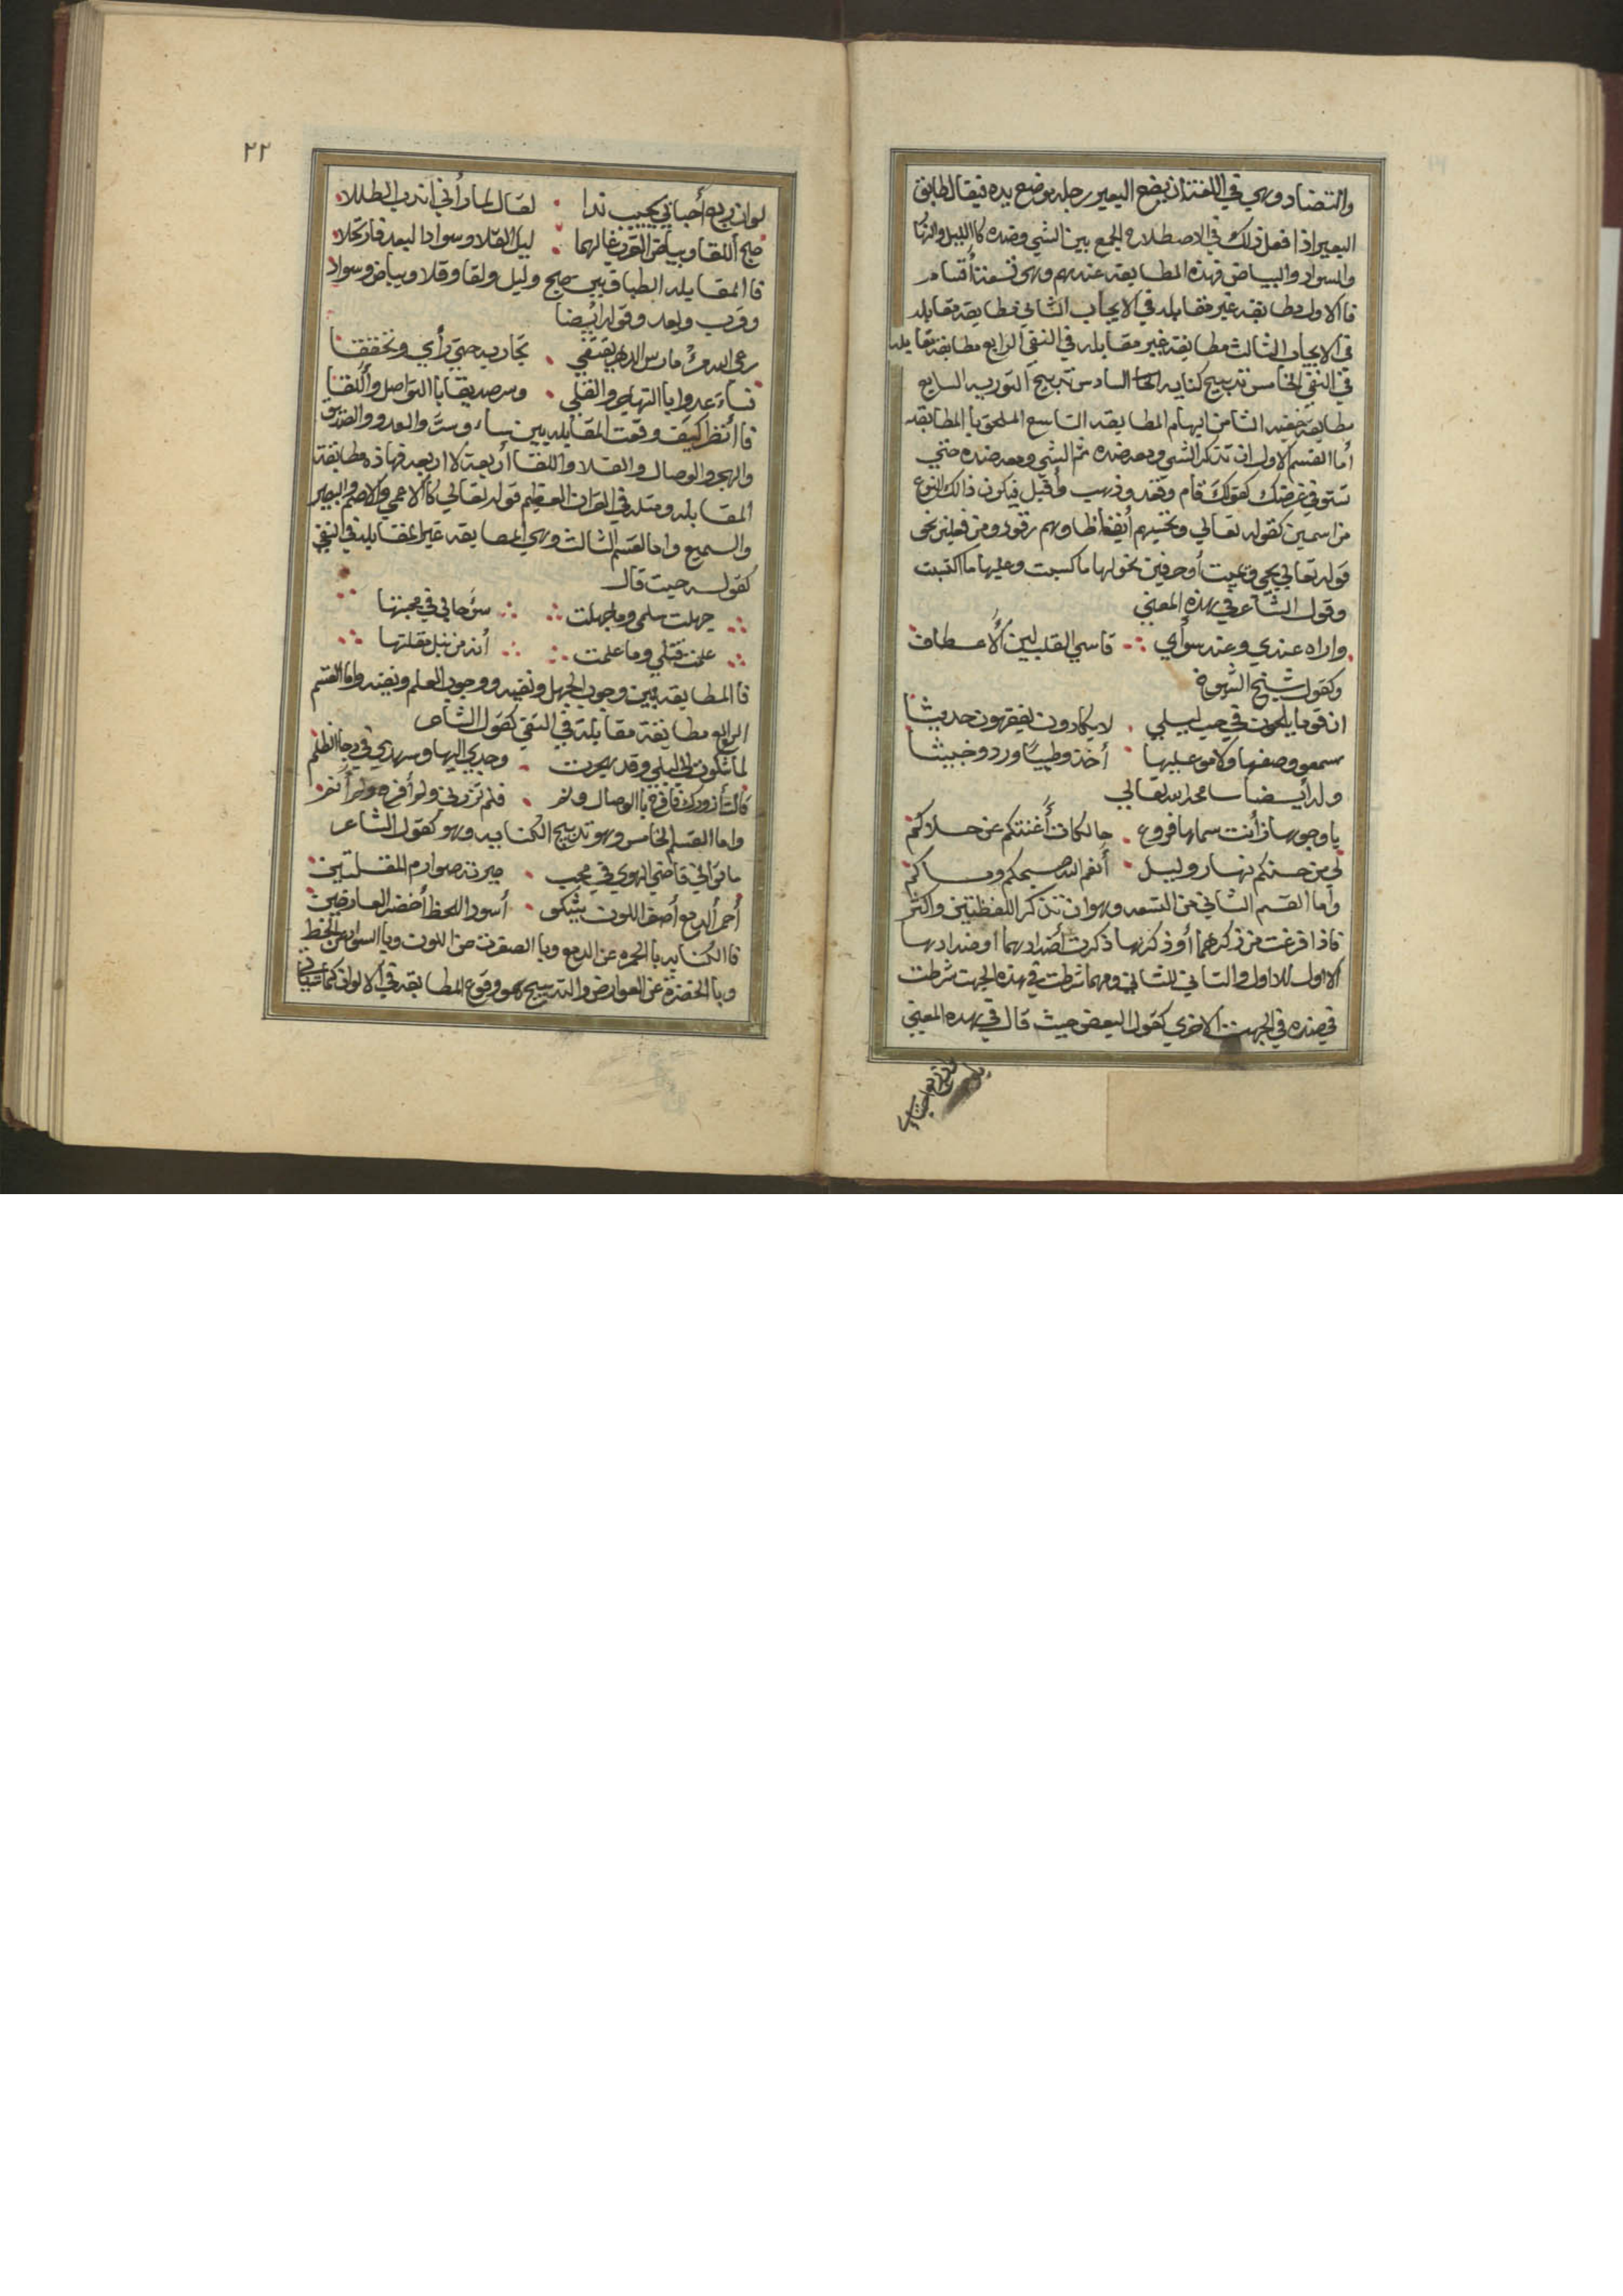 والتضاد وهي في اللغة ان يضع البعير رجله موضع يده فيقال طابق
البعير اذا فعل ذلك في الاصطلاح الجمع بين الشي وضده كاالليل والنهار
والسواد والبياض فهذه المطابقه عندهم وهي تسعة أقسام
فاالاول مطابقه غير مقابله في الايجاب الثاني مطابقة مقابله
في الايجاب الثالث مطابقة غير مقابله في النفي الرابع مطابقة مقابله
في النفي الخامس تدبيج كنايه السادس تدبيج التوريه السابع
مطابقة خفيه الثامن ايهام المطابقه التاسع الملحق باالمطابقه
أما القسم الاول ان تذكر الشي ومعه ضده ثم الشي ومعه ضده حتي
تستوفي غرضك كقولك قام وقعد وذهب وأقبل فيكون ذالك النوع
من اسمين كقوله تعالي وتحسبهم أيقاظا وهم رقود ومن فعلين نحو
قوله تعالي يحيي ويميت أوحرفين نحو لها ماكسبت وعليها ما اكتسبت
وقول الشاعر في هذه المعني
واراه عندي وعند سوأي قاسي القلب لين ألأعطاف
وكقول شيخ الشيوخ
ان قوما يلحون في حب ليلي لا يكادون يفقهون حديثا
سمعو وصفها ولامو عليها أخذو طيبا وردو خبيثا
وله أيضا سامحه الله تعالي
ياوجوها زأنت سماها فروع حالكات أغنتكم عن حلاكم
لي من حسنكم نهار وليل أنعم الله صبحكم ومساكم
وأما القسم الثاني من التسعه وهو ان تذكر اللفظتين واكثر
فاذا فرغت من ذكرهما أو ذكرها ذكرت أضدادهما او ضدادها
الاول للاول والثاني للثاني ومهما شرطت في هذه الجهت شرطت
في ضده في الجهت الاخري كقول البعض حيث قال في هذه المعني
٢٢
لوان ربع أحبائي يجيب ندا لقال لما رأني اندب الطللا
صبح اللقا وبياض القرب غالهما ليل القلا وسوادا لبعد فارتحلا
فاالمقابله الطباق بين صبح وليل ولقا وقلا وبياض وسواد
وقرب وبعد وقوله أيضا
رعي الله من مارس الدهر يقتفي تجاربه حتي رأي وتحققا
فساء عدوا باالتهاجر والقلي وسر صديقا باالتواصل واللقا
فاأنظر كيف وقعت المقابله بين ساء وسر والعدو والصديق
والهجر والوصال والقلا واللقا أربعة لا اربعه فهاذه مطابقة
المقابله ومثله في القران العظيم قوله تعالي كاالاعمي والاصم والبصير
والسميع واما القسم الثالث وهي المطابقه غير المقابله في النفي
كقوله حيث قال
جهلت سلمي وما جهلت سوء حالي في محبتها
علمت قتلي وما علمت أنه من نبل مقلتها
فاالمطابقه بين وجود الجهل ونفيه ووجود العلم ونفيه واما القسم
الرابع مطابقة مقابلة في النفي كقول الشاعر
لما شكوت الي ليلي وقد هجرت وجدي اليها وسهدي في دجا الظلم
قالت أزورك فافرح باالوصال ونم فلم تزرني ولم أفرح ولم أنم
واما القسم الخامس وهو تدبيج الكنايه وهو كقول الشاعر
ما تراني قاضي الهوي في محب صيرته صوارم المقلتين
أحمر الدمع أصفر اللون يشكو أسود اللحظ أخضر العارضين
فاالكنايه باالحمره عن الدمع وبا الصفرت عن اللون وباالسواد عن اللحظ
وباالخضرة عن العوارض والتدبيج هو وقوع المطابقه في الالوان كما سياتي